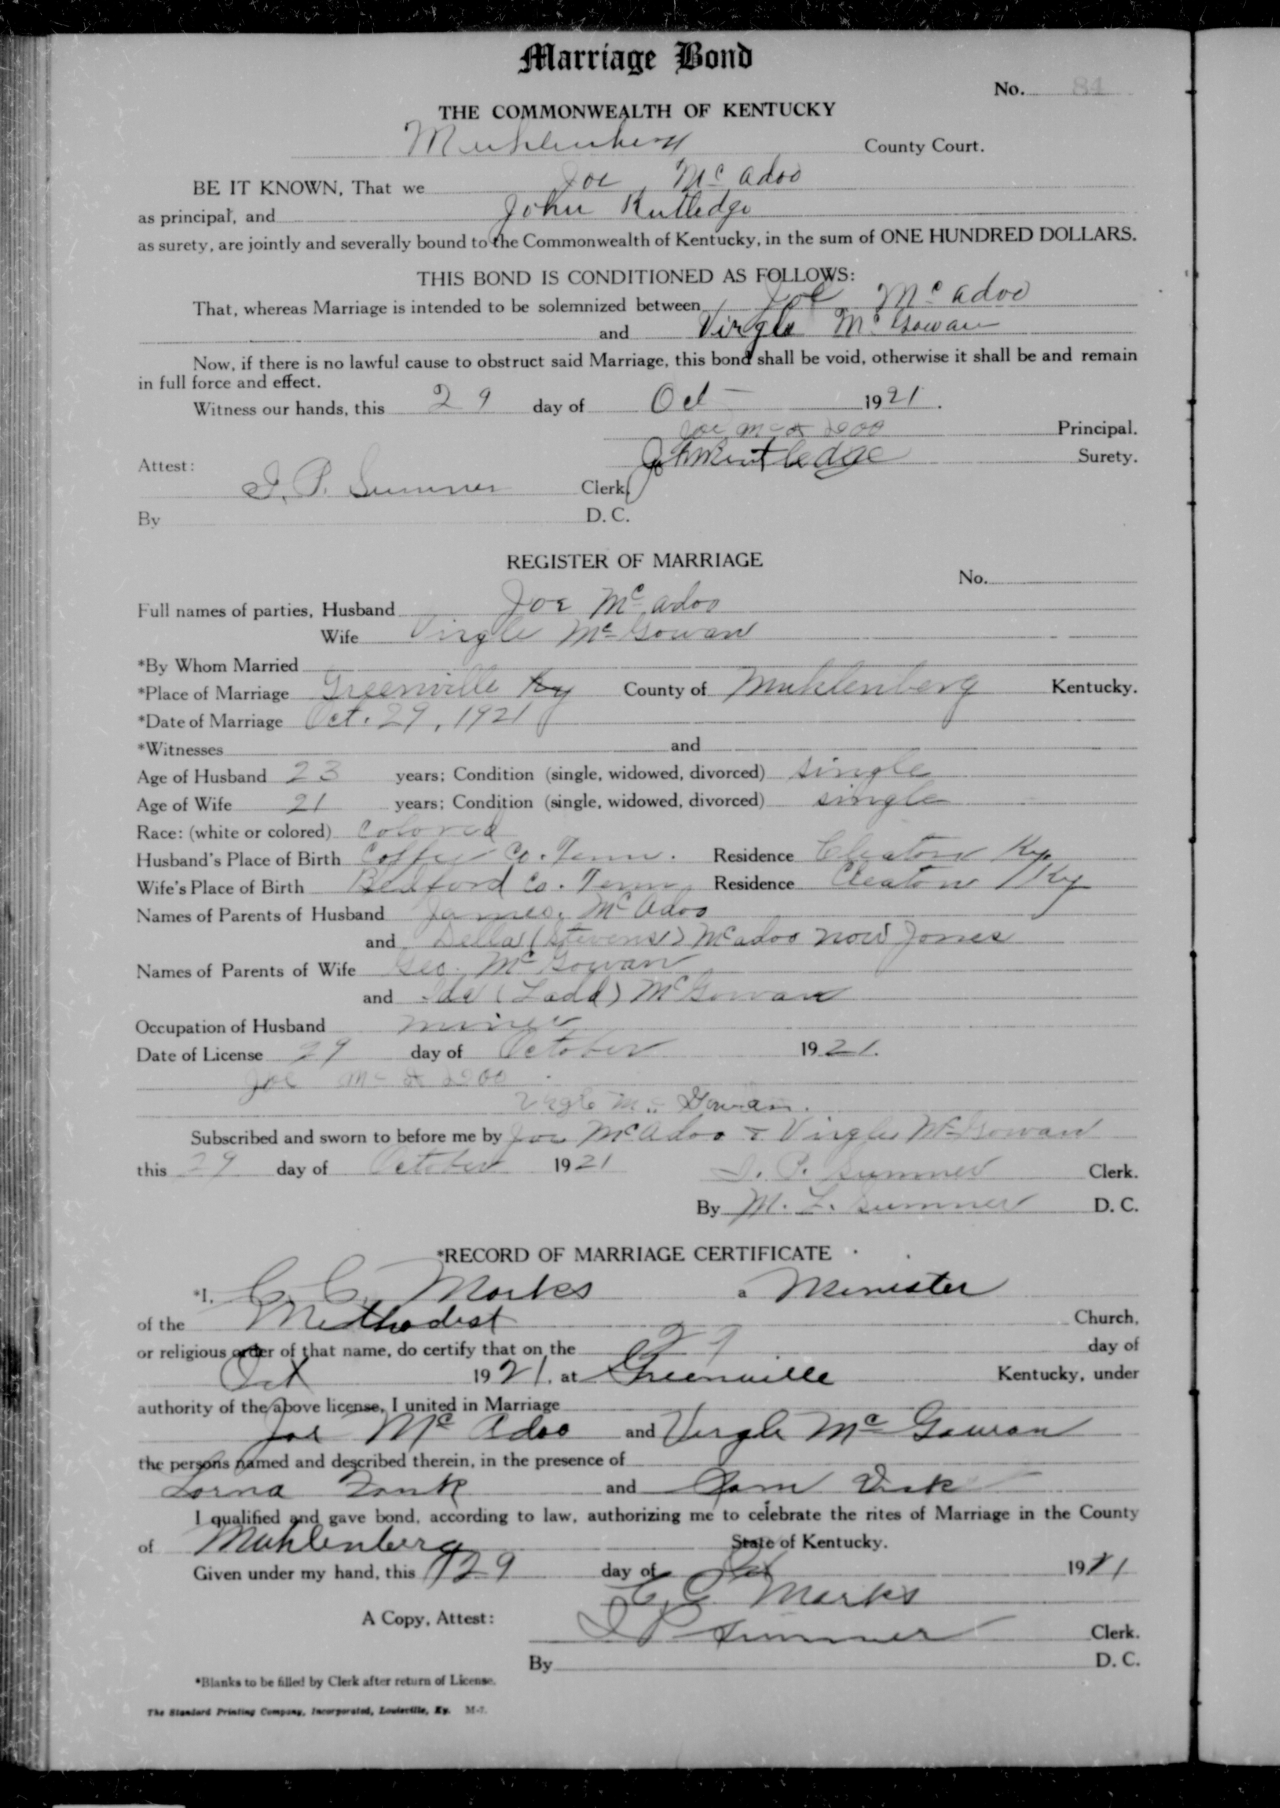 Marriage Bond
No. 84
THE COMMONWEALTH OF KENTUCKY
Muhlenberg County Court.
BE IT KNOWN, That we Joe McAdoo
as principal, and John Rutledge
as surety, are jointly and severally bound to the Commonwealth of Kentucky, in the sum of ONE HUNDRED DOLLARS.
THIS BOND IS CONDITIONED AS FOLLOWS:
That, whereas Marriage is intended to be solemnized between Joe McAdoo
and Virgle McGowan
Now, if there is no lawful cause to obstruct said Marriage, this bond shall be void, otherwise it shall be and remain
in full force and effect.
Witness our hands, this 29 day of Oct 1921.
Joe McAdoo Principal.
John Rutledge Surety.
Attest:
J. P. Summer Clerk,
By D. C.
REGISTER OF MARRIAGE
No.
Full names of parties, Husband Joe McAdoo
Wife Virgle McGowan
*By Whom Married
*Place of Marriage Greenville Ky County of Muhlenberg Kentucky.
*Date of Marriage Oct. 29, 1921
*Witnesses and
Age of Husband 23 years; Condition (single, widowed, divorced) single
Age of Wife 21 years; Condition (single, widowed, divorced) single
Race: (white or colored) colored
Husband's Place of Birth Coffee Co. Tenn. Residence Cleaton Ky
Wife's Place of Birth Bedford Co. Tenn. Residence Cleaton Ky
Names of Parents of Husband James McAdoo
and Della (Stevens) McAdoo now Jones
Names of Parents of Wife Geo. McGowan
and Ida (Ladd) McGowan
Occupation of Husband miner
Date of License 29 day of October 1921.
Joe McAdoo
Virgle McGowan.
Subscribed and sworn to before me by Joe McAdoo & Virgle McGowan
this 29 day of October 1921
J. P. Summer Clerk.
By M. L. Summer D. C.
*RECORD OF MARRIAGE CERTIFICATE
*I, C. C. Marks a Minister
of the Methodist Church,
or religious order of that name, do certify that on the 29 day of
Oct 1921. at Greenville Kentucky, under
authority of the above license, I united in Marriage
Joe McAdoo and Virgle McGowan
the persons named and described therein, in the presence of
Lorna and Sam
I qualified and gave bond, according to law, authorizing me to celebrate the rites of Marriage in the County
of Muhlenberg State of Kentucky.
Given under my hand, this 29 day of Oct 1921
C. C. Marks
A Copy, Attest:
J P Summer Clerk.
By D. C.
*Blanks to be filled by Clerk after return of License.
The Standard Printing Company, Incorporated, Louisville, Ky. M-7.